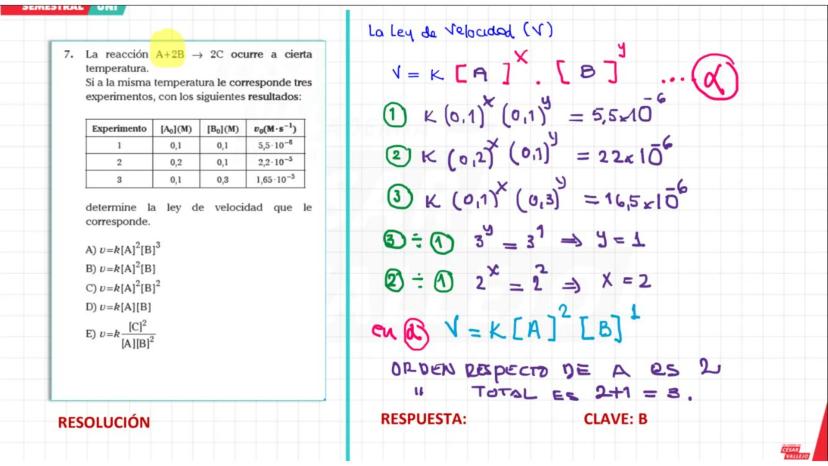 SEMESTRAL UNI
7. La reacción A+2B → 2C ocurre a cierta
temperatura.
Si a la misma temperatura le corresponde tres
experimentos, con los siguientes resultados:
Experimento [A₀](M) [B₀](M) v₀(M·s⁻¹)
1 0,1 0,1 5,5·10⁻⁶
2 0,2 0,1 2,2·10⁻⁵
3 0,1 0,3 1,65·10⁻⁵
determine la ley de velocidad que le
corresponde.
A) v=k[A]²[B]³
B) v=k[A]²[B]
C) v=k[A]²[B]²
D) v=k[A][B]
E) v=k [C]²/[A][B]²
RESOLUCIÓN
La Ley de Velocidad (V)
V = K [A]ˣ . [B]ʸ ... α
① K (0,1)ˣ (0,1)ʸ = 5,5x10⁻⁶
② K (0,2)ˣ (0,1)ʸ = 22x10⁻⁶
③ K (0,1)ˣ (0,3)ʸ = 16,5x10⁻⁶
③ ÷ ① 3ʸ = 3¹ ⇒ y = 1
② ÷ ① 2ˣ = 2² ⇒ X = 2
en α V = K [A]² [B]¹
ORDEN RESPECTO DE A es 2
" TOTAL ES 2+1 = 3.
RESPUESTA: CLAVE: B
CESAR
VALLEJO